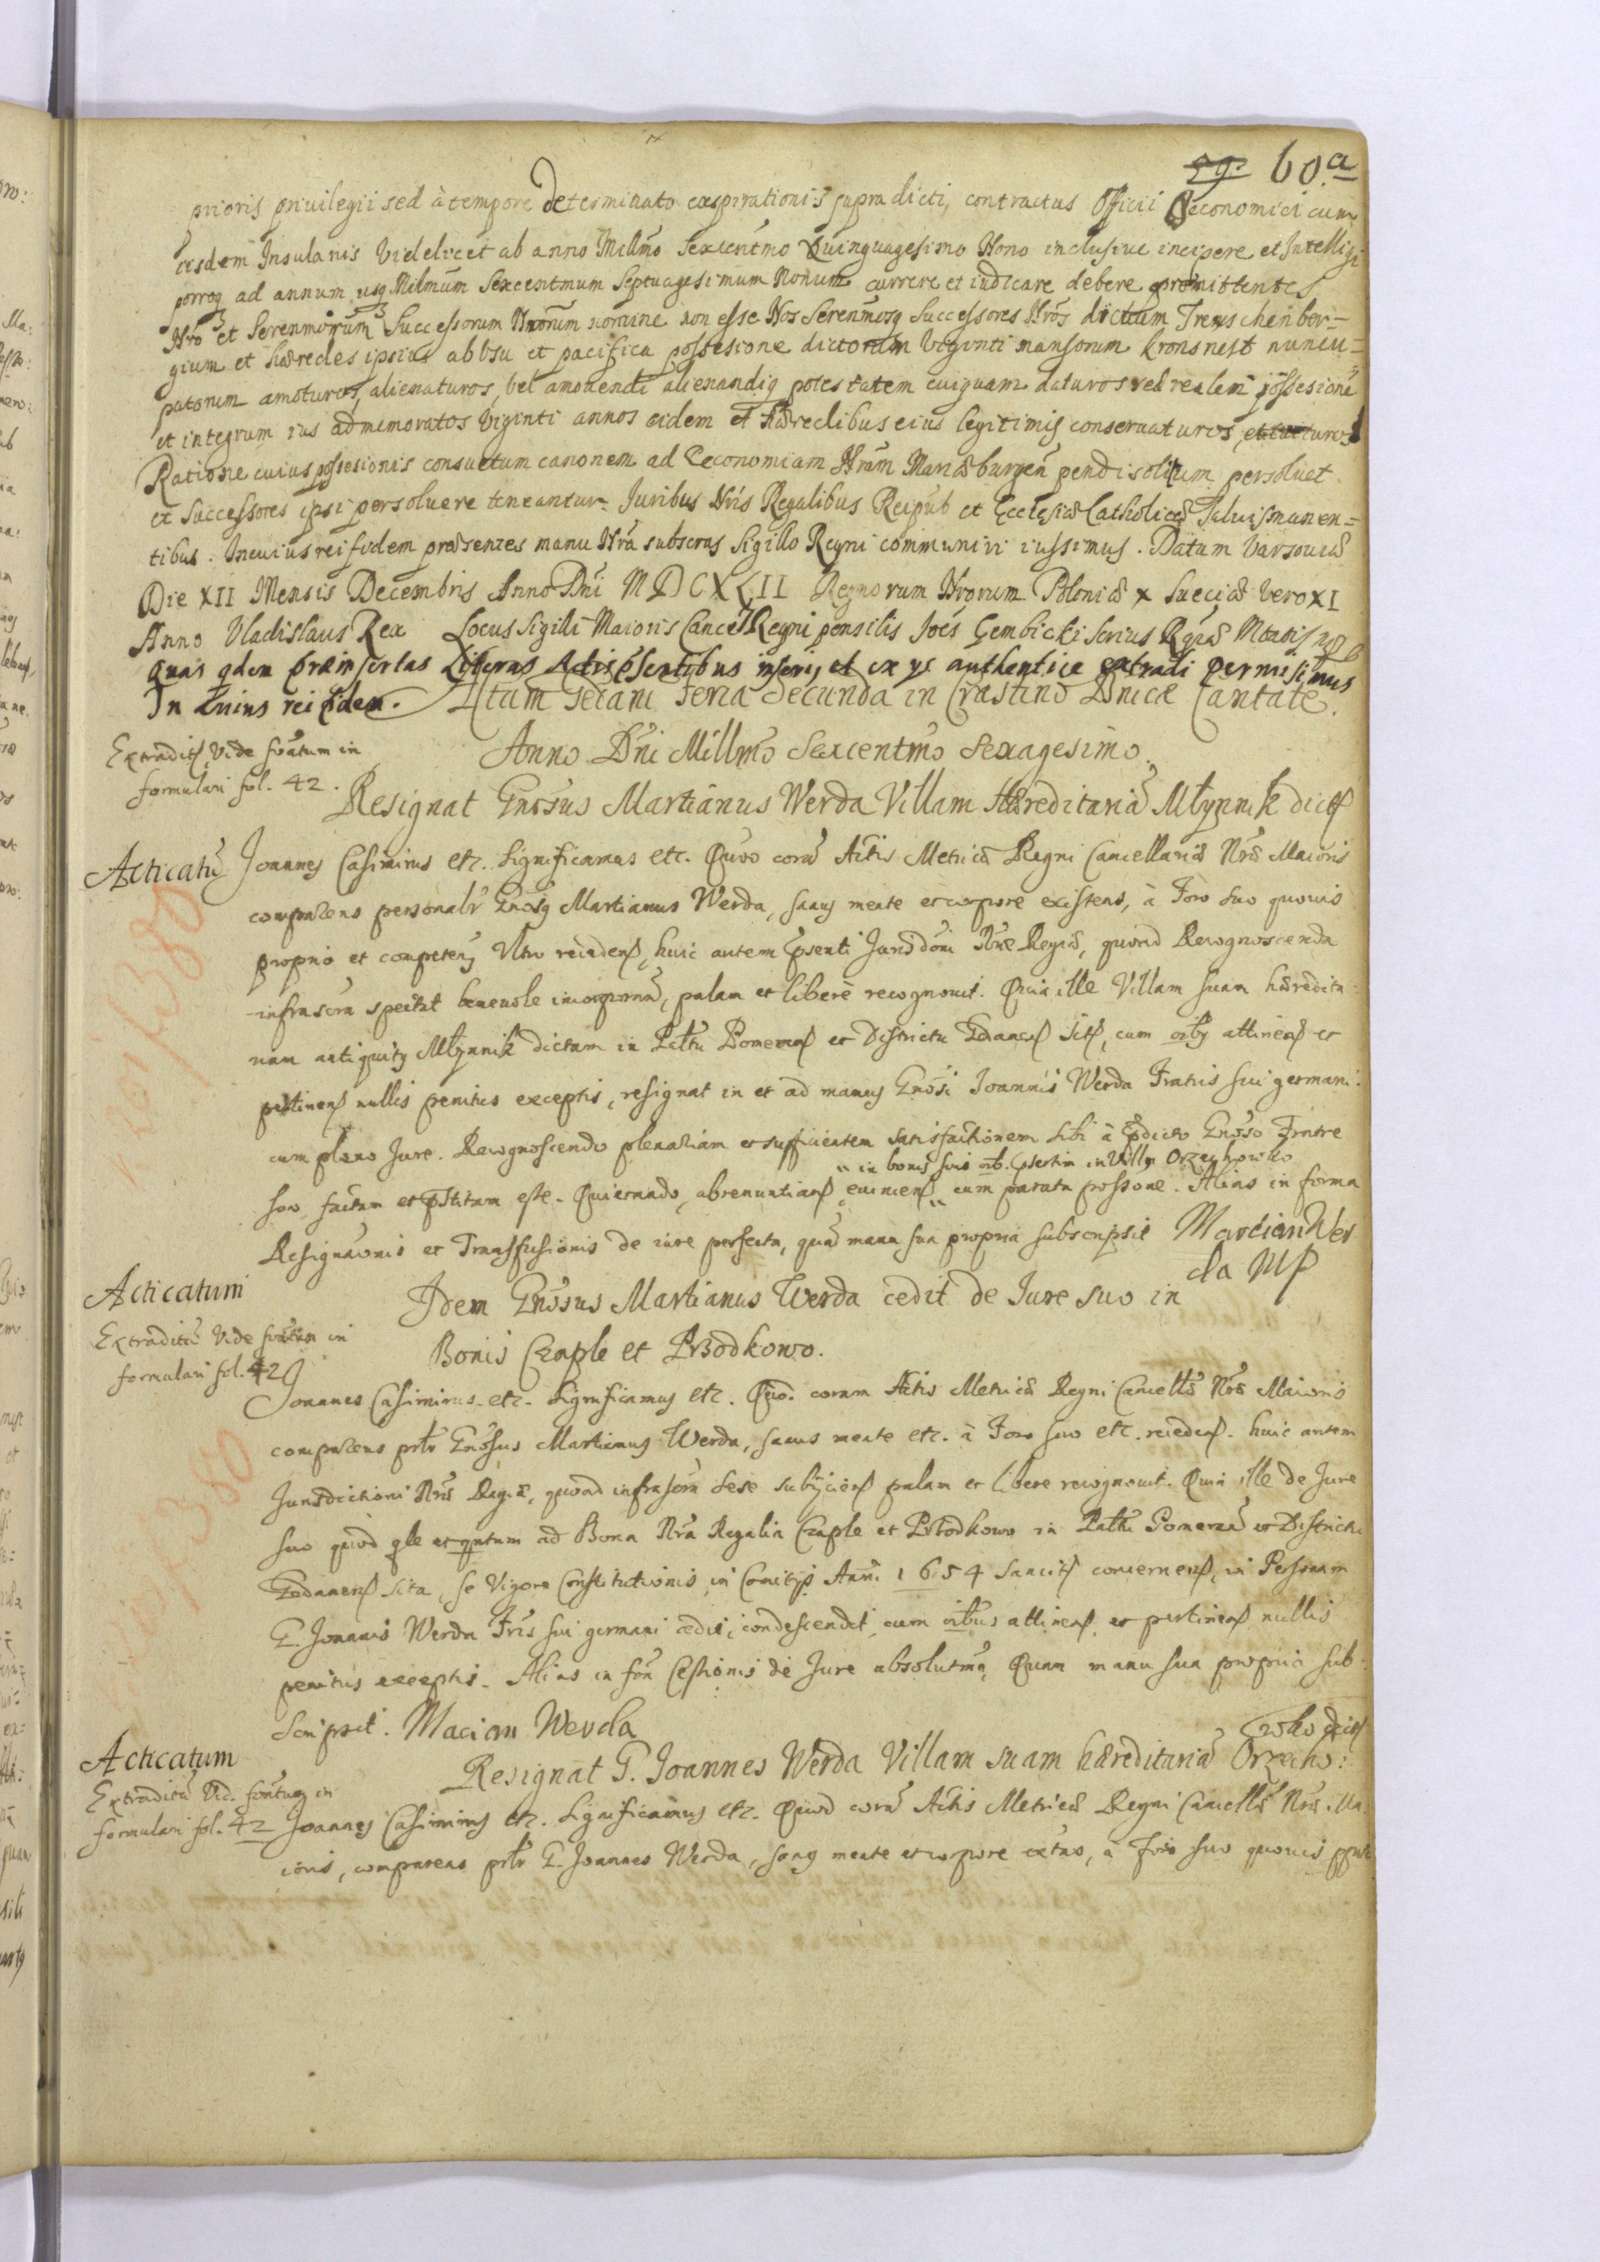 59. 60.a
prioris privilegii sed à tempore determinato exspirationis supradicti, contractus Officii Oeconomici cum
eisdem Insulanis Videlicet ab anno Millmo Sexcentmo Quinquagesimo Nono inclusive incipere et Intelligi
porroq ad annum usq Milmum Sexcentmum Septuagesimum Nonum currere et iudicare debere promittentes
Nro et Serenmorum Successorum Nrorum nomine non esse Nos Serenmosq Successores Nros dictum Treuschenber=
gium et hæredes ipsius ab usu et pacifica possesione dictorum Viginti mansorum Kronsnest nuncu=
patorum amoturos, alienaturos, vel amovendi alienandiq potestatem cuiquam daturos sed realem possesione
et integrum ius ad memoratos viginti annos eidem et hæredibus eius legitimis conservaturos
Ratione cuius possesionis consuetum canonem ad Oeconomiam Nram Mariæburgen pendi solitum persolvet
et Successores ipsi persolvere teneantur Juribus Nris Regalibus Reipub et Ecclesiæ Catholicæ salvis manen=
tibus. In cuius rei fidem præsentes manu Nra subscras Sigillo Regni communiri iussimus. Datum Varsoviæ
Die XII Mensis Decembris Anno Dni MDCXLII Regnorum Nrorum Poloniæ X Sueciæ vero XI
Anno Vladislaus Rex Locus Sigilli Maioris Cancel Regni pensilis Joes Gembicki Serius Rgiæ Mtatis
quas qdem præinsertas Literas Actis psentibus inseri, et ex ys authentice extradi permisimus
In cuius rei fidem. Actum Gedani Feria Secunda in Crastino Dnicæ Cantate.
Anno Dni Millmo Sexcentmo Sexagesimo.
Extradit Vide formatum in
formulari fol. 42.
Resignat Gnosus Martianus Werda Villam Hæreditaria Młynnik dict
Acticatu Joannes Casimirus etc. Significamus etc. Quod cora Actis Metricæ Regni Cancellariæ Nræ Maioris
comparens personalr Gnosq Martianus Werda, sanus mente et corpore existens, à Foro suo quovis
proprio et competen Vtro recedens, huic autem psenti Jurisdoni Nræ Regiæ, quoad Recognoscenda
infrascra spectat benevole incorporan, palam et libere recognovit. Quia ille Villam suam hæredita
riam antiquitq Młynnik dictam in Pattu Pomeran et Districtu Gdanen sit, cum oibq attinen et
pertinen nullis penitus exceptis, resignat in et ad manus Gnosi Joannis Werda Fratris sui germani
cum pleno Jure. Recognoscendo plenariam et sufficientem satisfactionem sibi à pdicto Gnoso Fratre
in bonis suis oib. psertim in Villa Orzechowko
suo factam et pstitam esse. Quietando, abrenuntians, evincens cum parata pssione. Alias in forma
Resignaonis et Transfusionis de iure perfecta, qua manu sua propria subscripsit Marcian Wer
da MP
Acticatum
Extraditu Vide formatum in
formulari fol. 42
Idem Gnosus Martianus Werda cedit de Jure suo in
Bonis Czaple et Przodkowo.
Joannes Casimirus etc. Significamus etc. Quod. coram Actis Metricæ Regni Cancellæ Nræ Maioris
comparens prlr Gnosus Martianus Werda, sanus mente etc. à Foro suo etc. receden. huic autem
Jurisdictioni Nræ Regiæ, quoad infrascra sese subijcien palam et libere recognovit. Quia ille de Jure
suo quod qle et qntum ad Bona Nra Regalia Czaple et Przodkowo in Pattu Pomeran et Districtu
Gedanen sita, se vigore Constitutionis in Comitijs Anni 1654 sancit concernen, in Personam
G. Joannis Werda Fris sui germani cedit, condescendit, cum oibus attinen et pertinen nullis
penitus exceptis. Alias in forma Cessionis de Jure absolutma. Quam manu sua propria sub
scripsit. Macian Werda
Acticatum
Extraditu Vid. formatum in
formulari fol. 42
Resignat G. Joannes Werda Villam suam hæreditaria Orzecho:
wko dict
Joannes Casimirus etc. Significamus etc. Quod cora Actis Metricæ Regni Cancellæ Nræ Ma
ioris, comparens prlr G. Joannes Werda, sanq mente et corpore extns, à Foro suo quovis pprio